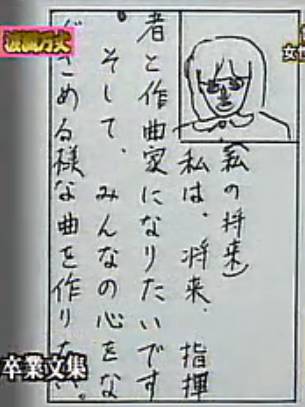 波瀾万丈
女
(私の将来)
私は、将来、指揮
者と作曲家になりたいです
。そして、みんなの心をな
ぐさめる様な曲を作りたい。
卒業文集